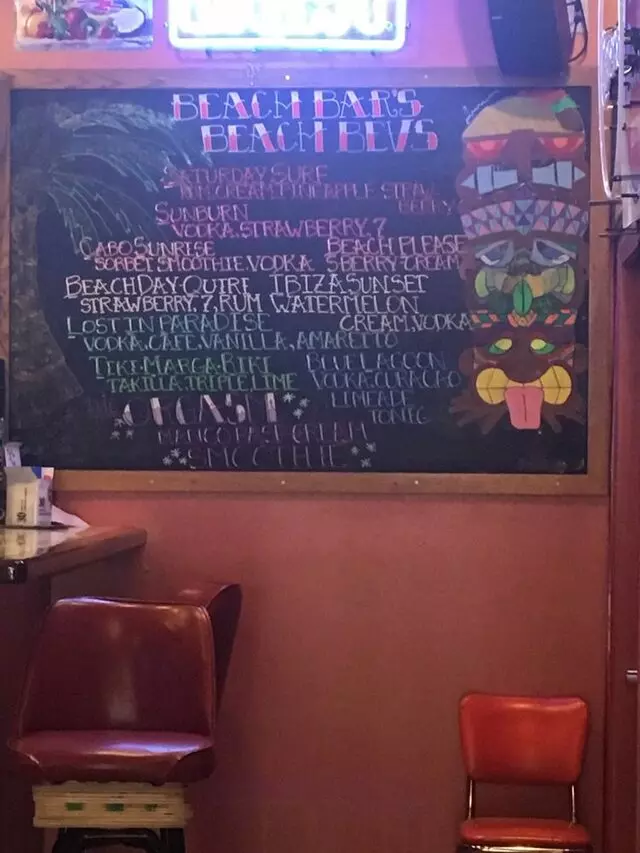 BEACH BAR'S
BEACH BEVS
SATURDAY SURF
RUM CREAM, PINEAPPLE STRAW
BERRY
SUNBURN
VODKA, STRAWBERRY, 7
CABO SUNRISE
SORBET SMOOTHIE, VODKA
BEACH PLEASE
SBERRY CREAM
BEACH DAY QUIRI
STRAWBERRY, 7, RUM
IBIZA SUNSET
WATERMELON
CREAM, VODKA
LOST IN PARADISE
VODKA, CAFE, VANILLA, AMARETTO
TIKI-MARGA-RIKI
TAKILLA, TRIPLE, LIME
BLUE LAGOON
VODKA, CURACAO
LIMEADE
TONIC
SMOOTHIE